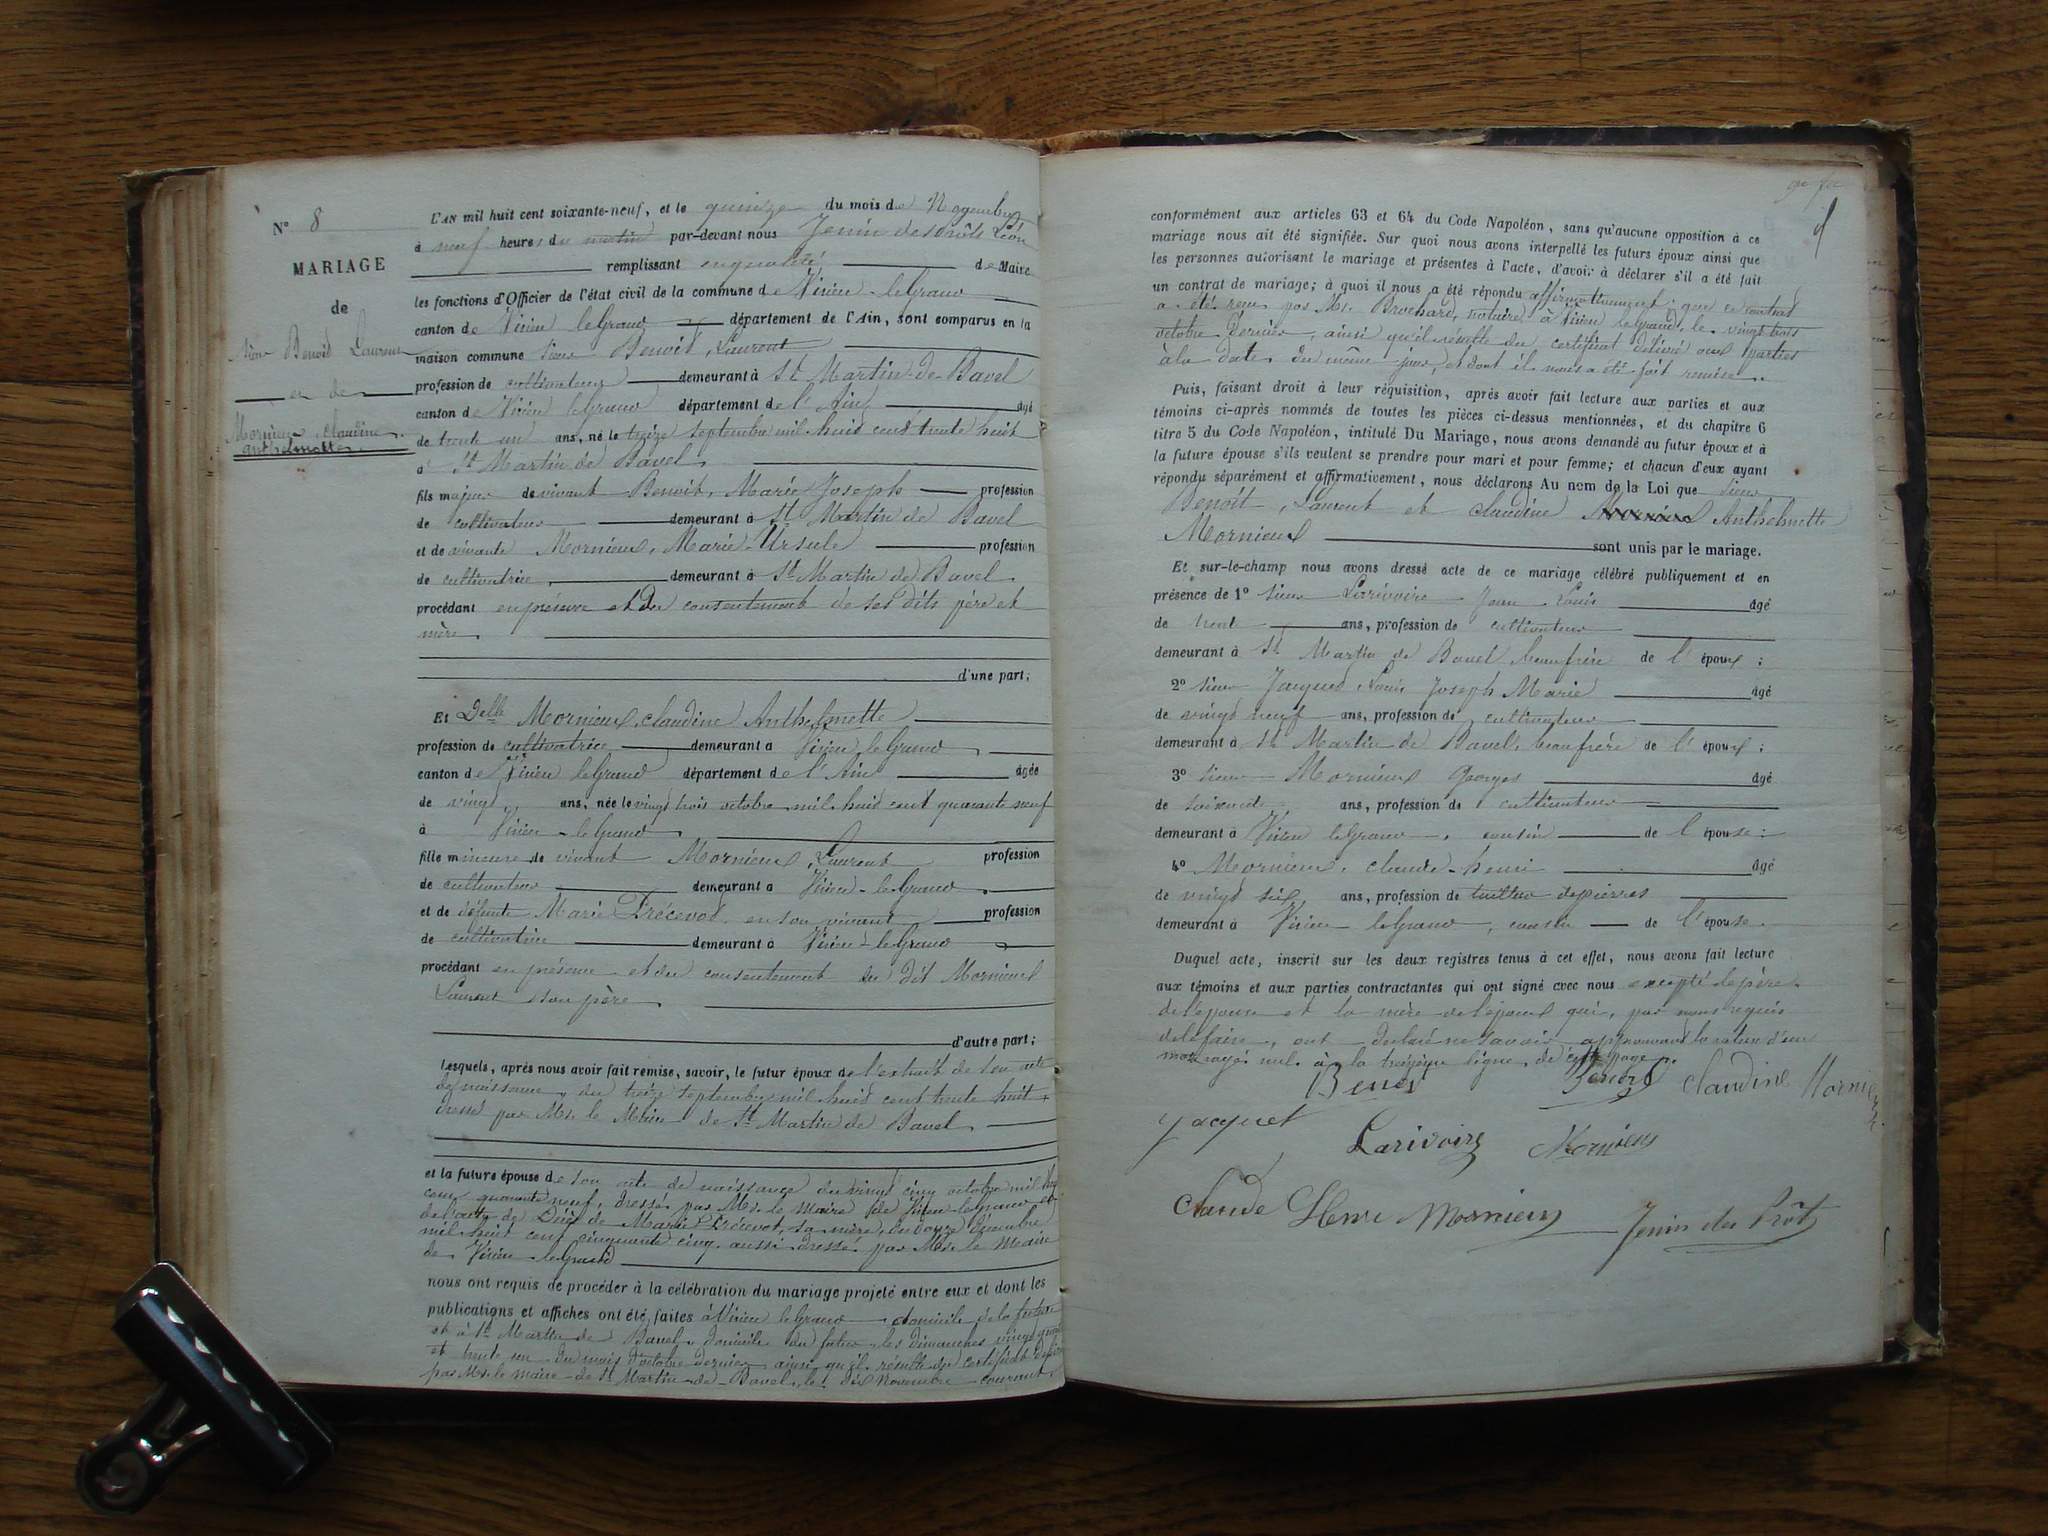 N° 8
MARIAGE
de
Sieur Benoit Laurent
et de
Mornieux, Claudine
Anthelmette
L'AN mil huit cent soixante-neuf, et le quinze du mois de Novembre
à neuf heures du matin par-devant nous Jenin des Prôts Léon
remplissant en qualité de Maire
les fonctions d'Officier de l'état civil de la commune de Virieu-le-Grand
canton de Virieu le Grand département de l'Ain, sont comparus en la
maison commune sieur Benoit, Laurent
profession de cultivateur demeurant à St Martin de Bavel
canton de Virieu le Grand département de l'Ain âgé
de trente un ans, né le treize septembre mil huit cent trente huit
à St Martin de Bavel
fils majeur de vivant Benoit, Marie Joseph profession
de cultivateur demeurant à St Martin de Bavel
et de vivante Mornieux, Marie Ursule profession
de cultivatrice demeurant à St Martin de Bavel
procédant en présence et du consentement de ses dits père et
mère
d'une part;
Et Delle Mornieux, Claudine Anthelmette
profession de cultivatrice demeurant à Virieu le Grand
canton de Virieu le Grand département de l'Ain âgée
de vingt ans, née le vingt trois octobre mil huit cent quarante neuf
à Virieu-le-Grand
fille mineure de vivant Mornieux, Laurent profession
de cultivateur demeurant à Virieu-le-Grand
et de défunte Marie Trécevot en son vivant profession
de cultivatrice demeurant à Virieu-le-Grand
procédant en présence et du consentement du dit Mornieux
Laurent son père
d'autre part;
Lesquels, après nous avoir fait remise, savoir, le futur époux de l'extrait de son acte
de naissance, du treize septembre mil huit cent trente huit
dressé par Mr. le Maire de St Martin de Bavel
et la future épouse de son acte de naissance du vingt cinq octobre mil huit
cent quarante neuf, dressé par Mr. le Maire de Virieu le grand et
de l'acte de Décès de Marie Trécevot, sa mère, du onze décembre
mil huit cent cinquante cinq aussi dressé par Mr. le Maire
de Virieu-le-Grand
nous ont requis de procéder à la célébration du mariage projeté entre eux et dont les
publications et affiches ont été faites à Virieu le Grand domicile de la future
et à St Martin de Bavel, domicile du futur, les dimanches vingt quatre
et trente un du mois d'octobre dernier ainsi qu'il résulte du certificat délivré
par Mr. le maire de St Martin-de-Bavel, le dix Novembre courant.
conformément aux articles 63 et 64 du Code Napoléon, sans qu'aucune opposition à ce
mariage nous ait été signifiée. Sur quoi nous avons interpellé les futurs époux ainsi que
les personnes autorisant le mariage et présentes à l'acte, d'avoir à déclarer s'il a été fait
un contrat de mariage; à quoi il nous a été répondu affirmativement: que ce contrat
a été reçu par Mr. Brochard, notaire, à Virieu le Grand, le vingt trois
octobre dernier, ainsi qu'il résulte du certificat délivré aux parties
à la date du même jour, et dont il nous a été fait remise.
Puis, faisant droit à leur réquisition, après avoir fait lecture aux parties et aux
témoins ci-après nommés de toutes les pièces ci-dessus mentionnées, et du chapitre 6
titre 5 du Code Napoléon, intitulé Du Mariage, nous avons demandé au futur époux et à
la future épouse s'ils veulent se prendre pour mari et pour femme; et chacun d'eux ayant
répondu séparément et affirmativement, nous déclarons Au nom de la Loi que sieur
Benoît, Laurent et Claudine Anthelmette
Mornieux sont unis par le mariage.
Et sur-le-champ nous avons dressé acte de ce mariage célébré publiquement et en
présence de 1° sieur Larivoire Jean Louis âgé
de trente ans, profession de cultivateur
demeurant à St Martin de Bavel, beaufrère de l'époux;
2° sieur Jacquet Louis Joseph Marie âgé
de vingt neuf ans, profession de cultivateur
demeurant à St Martin de Bavel, beaufrère de l'époux;
3° sieur Mornieux Georges âgé
de soixante ans, profession de cultivateur
demeurant à Virieu le Grand, cousin de l'épouse;
4° Mornieux, Claude-henri âgé
de vingt six ans, profession de tailleur de pierres
demeurant à Virieu le Grand, cousin de l'épouse.
Duquel acte, inscrit sur les deux registres tenus à cet effet, nous avons fait lecture
aux témoins et aux parties contractantes qui ont signé avec nous excepté le père
de l'épouse et la mère de l'époux qui, par nous requis
de le faire, ont déclaré ne savoir approuvant la rature d'un
mot rayé nul à la treizième ligne de cette page.
Benoit Benoit Claudine Mornieux
Jacquet Larivoire Mornieux
Claude Henri Mornieux Jenin des Prôts